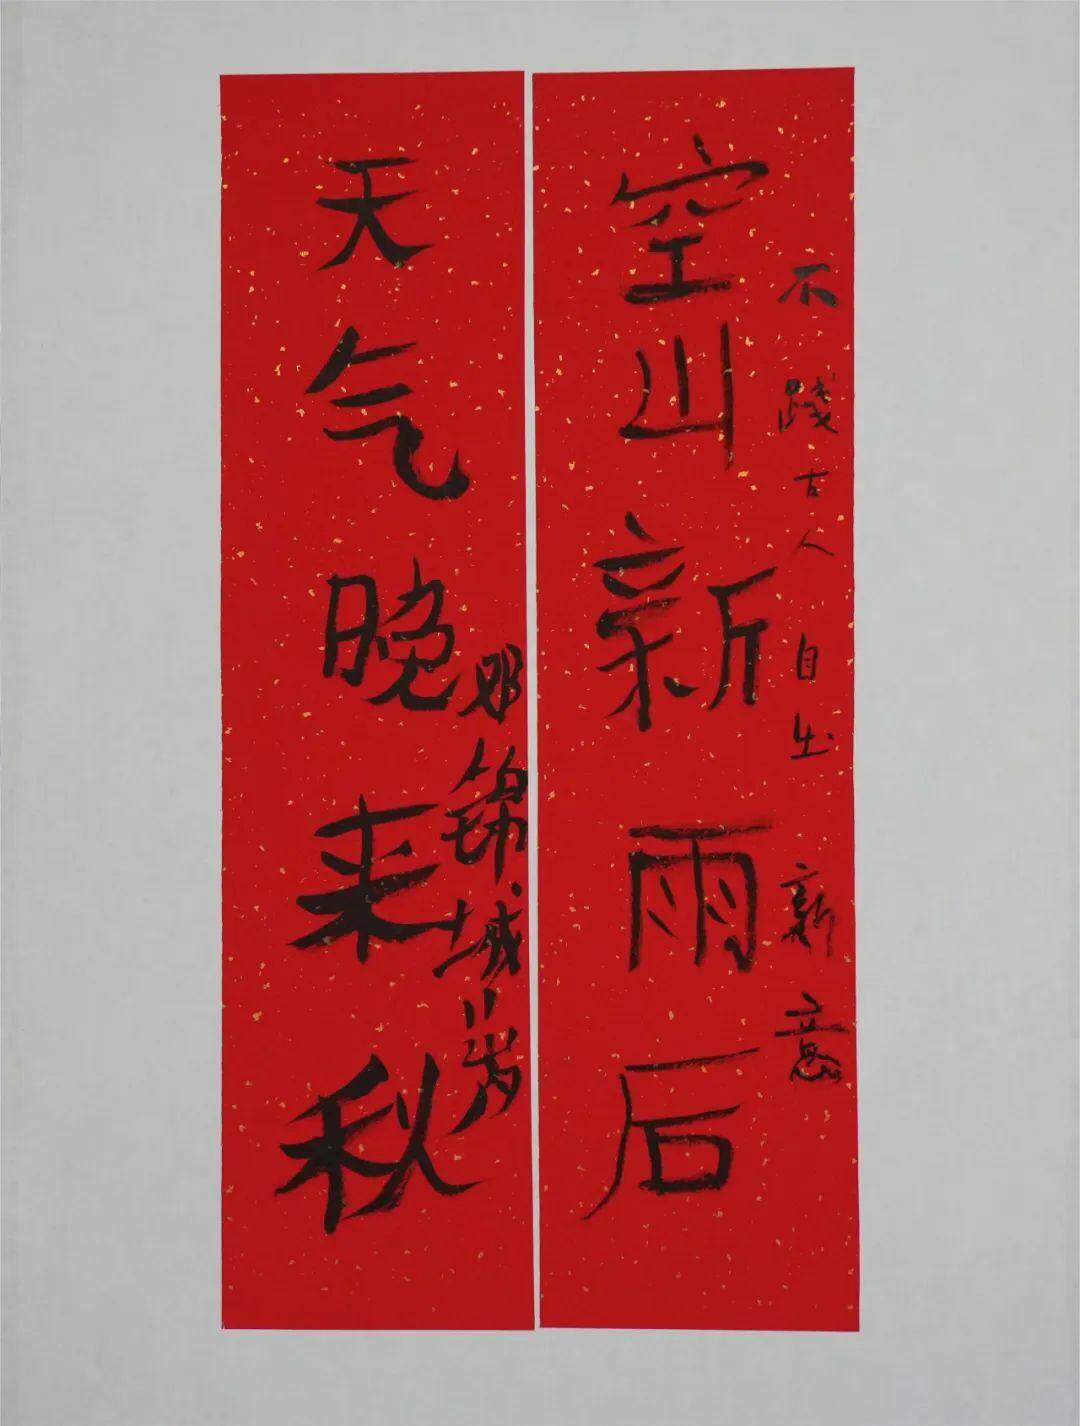 不踐古人自出新意
空山新雨后
天气晚来秋
锦城岁